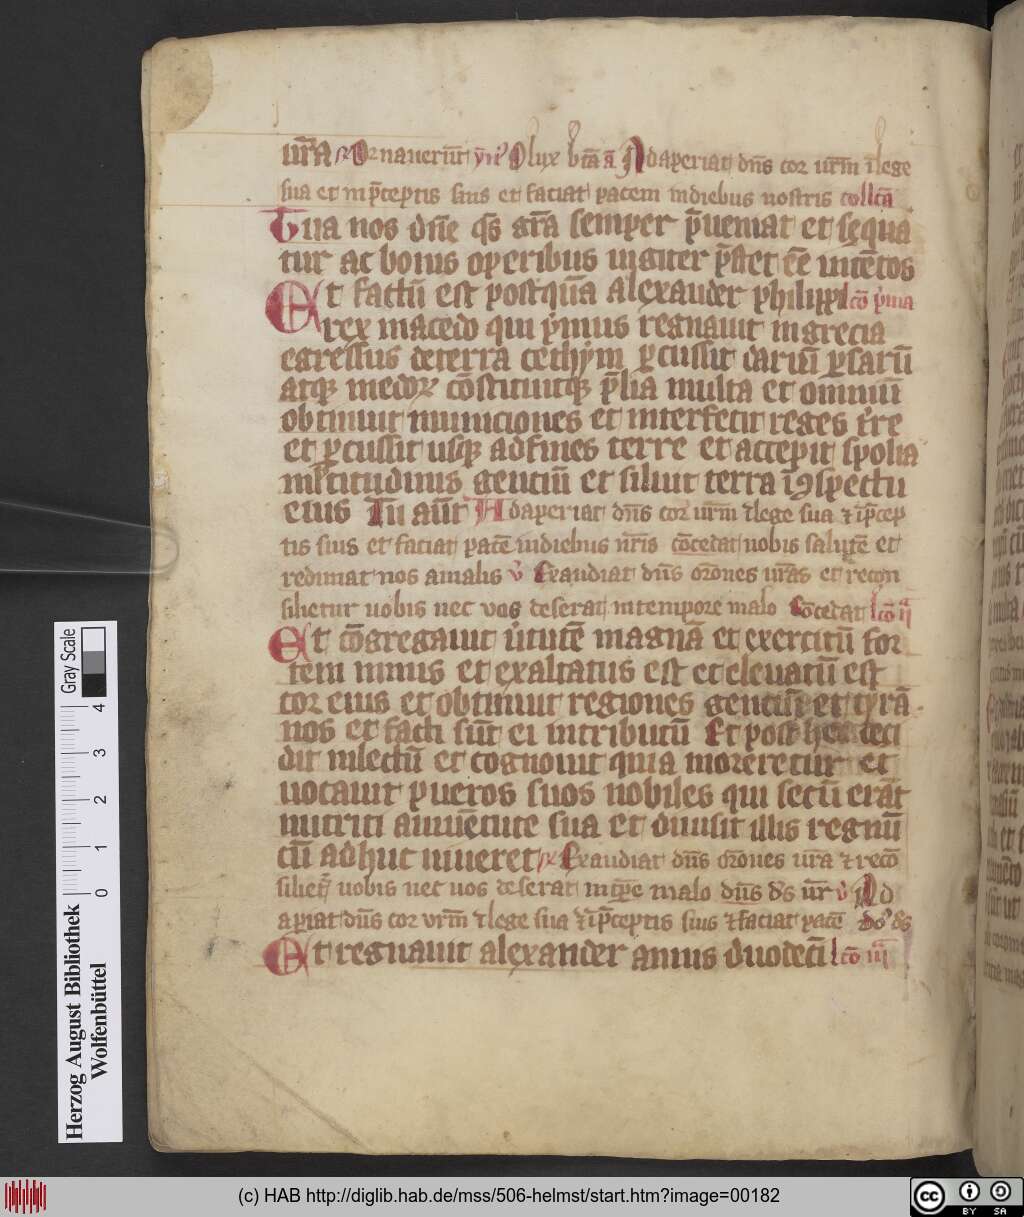 ur̄a ℟ Ornauer̄ut ẏn̄ O lux bt̄a ā Adaperiat dn̄s cor ur̄m ī lege
sua et in p̄ceptis suis et faciat pacem in diebus nostris coll̄cā
Tua nos dn̄e q̄s gr̄a semper p̄ueniat et sequa
tur ac bonis operibus iugiter p̄stet ēē intētos
Et factū est postquā alexander philippi lc̄o p̄ma
rex macedo qui p̍mus regnauit in grecia
egressus de terra cethym ꝑcussit dariū ꝑsarū
atqꝫ medoꝝ cōstituitqꝫ p̄lia multa et omniū
obtinuit municiones et interfecit reges t̍re
et ꝑcussit usqꝫ ad fines terre et accepit spolia
ml̄titudinis genciū et siluit terra ī ꝯspectu
eius Tu aūt Adaperiat dn̄s cor ur̄m ī lege sua ⁊ ī p̄cep
tis suis et faciat pacē in diebus nr̄is cōcedat uobis salutē et
redimat nos a malis v̍ Exaudiat dn̄s or̄ones ur̄as et recon
silietur uobis nec vos deserat in tempore malo Cōcedat lc̄o ii
Et cōgregauit u̍tutē magnā et exercitū for
tem nimis et exaltatus est et eleuatū est
cor eius et obtinuit regiones genciū et tyrā
nos et facti sūt ei in tributū Et post hec deci
dit in lectū et cognouit quia moreretur et
uocauit pueros suos nobiles qui secū erāt
nutriti a iuuētute sua et diuisit illis regnū
cū adhuc uiueret ℟ Exaudiat dn̄s or̄ones ur̄a ⁊ recō
siliet̄ uobis nec uos deserat in tp̄e malo dn̄s ds̄ ur̄ v̍ Ad
aꝑiat dn̄s cor vr̄m ī lege sua ⁊ ī p̄ceptis suis ⁊ faciat pacē ds̄ ds̄
Et regnauit alexander annis duodecī lc̄o iii
Gray Scale
4
3
2
1
0
Herzog August Bibliothek
Wolfenbüttel
(c) HAB http://diglib.hab.de/mss/506-helmst/start.htm?image=00182
cc BY SA